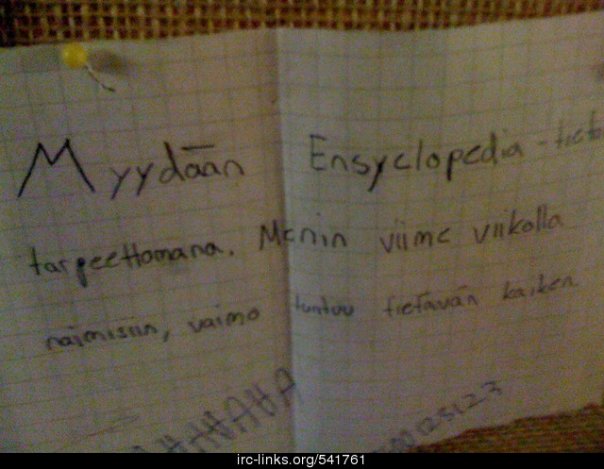 Myydään Ensyclopedia-
tarpeettomana. Menin viime viikolla
naimisiin, vaimo tuntuu tietävän kaiken
irc-links.org/541761